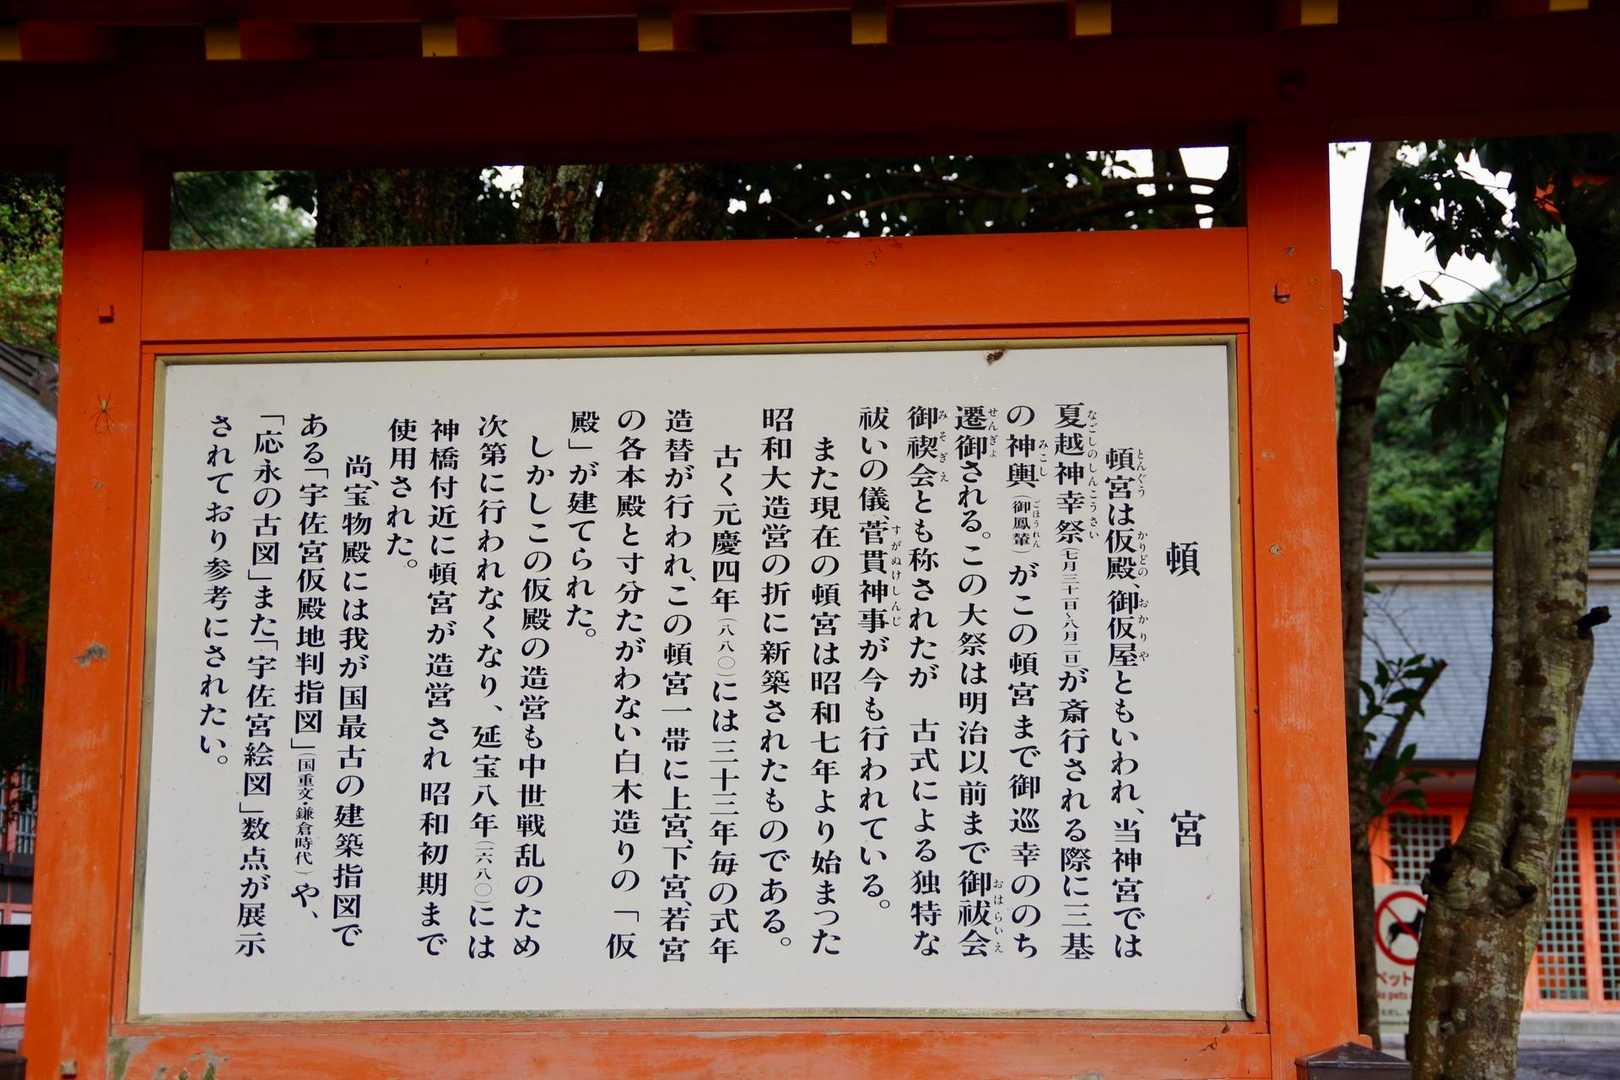 頓宮
頓宮は仮殿、御仮屋ともいわれ、当神宮では
夏越神幸祭(七月三十一日・八月二日)が斎行される際に三基
の神輿(御鳳輦)がこの頓宮まで御巡幸ののち
遷御される。この大祭は明治以前まで御祓会
御禊会とも称されたが 古式による独特な
祓いの儀、菅貫神事が今も行われている。
また現在の頓宮は昭和七年より始まった
昭和大造営の折に新築されたものである。
古く元慶四年(八八〇)には三十三年毎の式年
造替が行われ、この頓宮一帯に上宮、下宮、若宮
の各本殿と寸分たがわない白木造りの「仮
殿」が建てられた。
しかしこの仮殿の造営も中世戦乱のため
次第に行われなくなり、延宝八年(一六八〇)には
神橋付近に頓宮が造営され 昭和初期まで
使用された。
尚、宝物殿には我が国最古の建築指図で
ある「宇佐宮仮殿地判指図」(国重文・鎌倉時代)や、
「応永の古図」また「宇佐宮絵図」数点が展示
されており参考にされたい。
とんぐう
かりどの
おかりや
なごしのしんこうさい
みこし
ごほうれん
せんぎょ
おはらいえ
みそぎえ
すがぬけしんじ
ペット